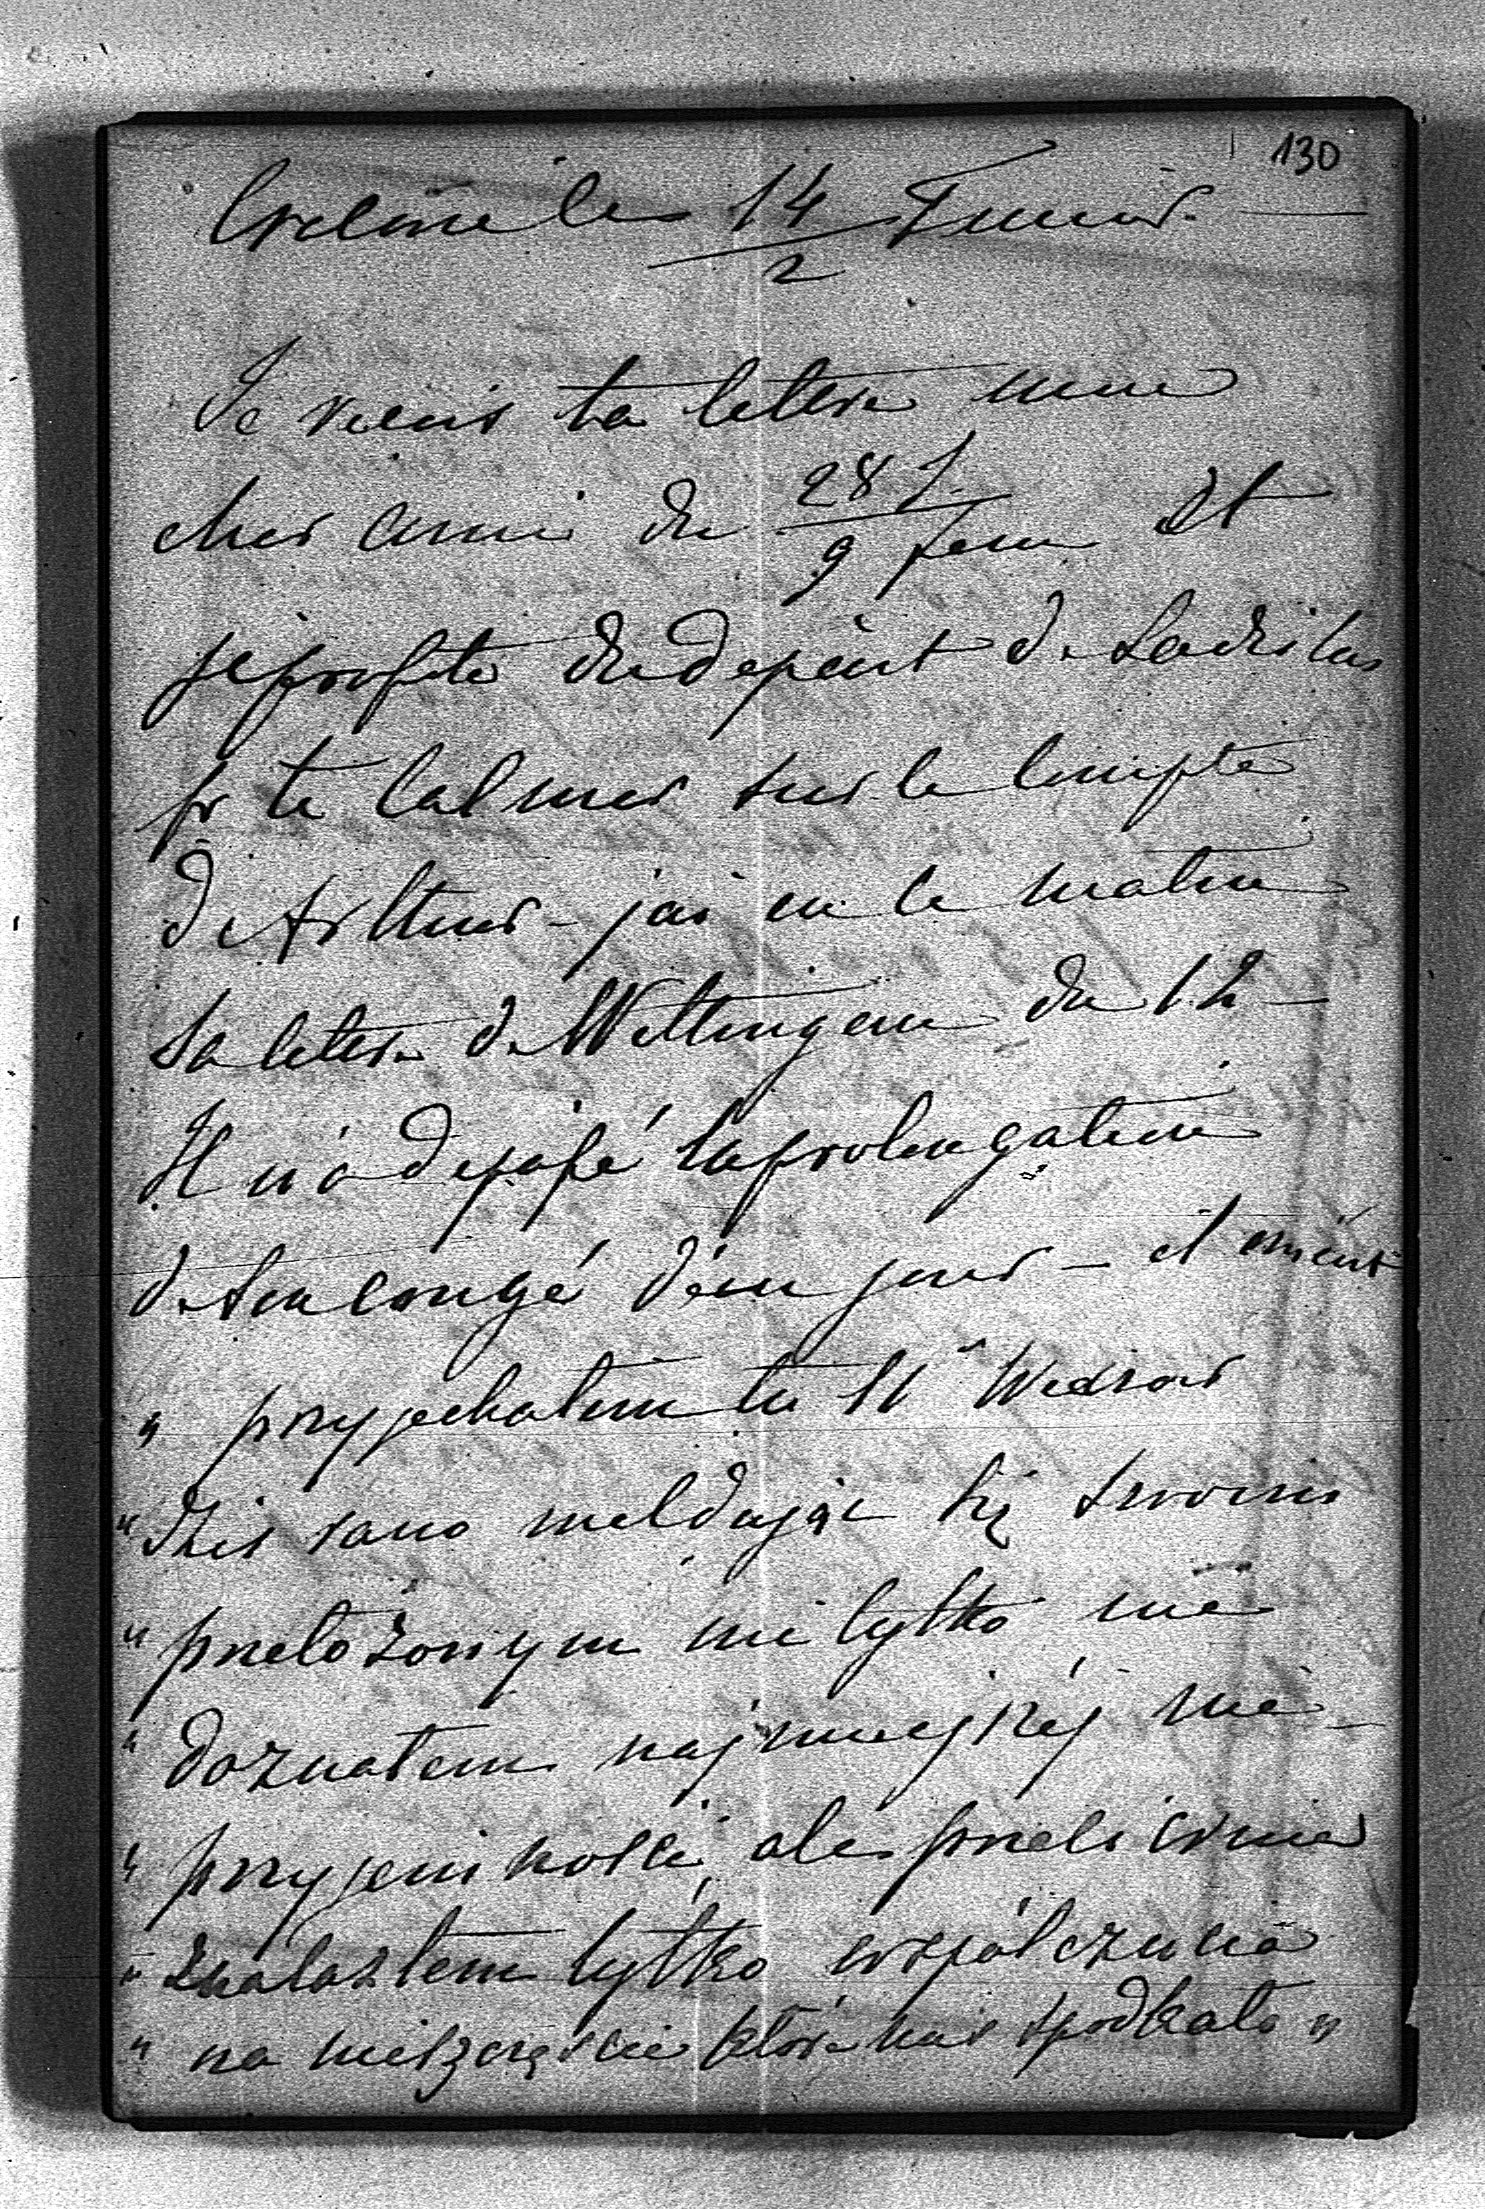 130
le 14/2 Fevrier
Je reçois ta lettre mon
cher ami du 28 J/9 fevr et
je profite du depart de Ladislas
pr te calmer sur le compte
de Arthur - j'ai eu ce matin
sa lettre de Wettingen du 12 -
Il n'a depassé la prolongation
de son congé d'un jour - il ecrit
" przyjechałem tu 11 Wieczor
" Dzis rano meldując się swoim
" przełożonym nie tylko nie
" doznałem najmniejszéj nie-
" przyjemności, ale przeciwnie
" znalazłem tylko współczucia
" na nieszczęscie które nas spodkało "